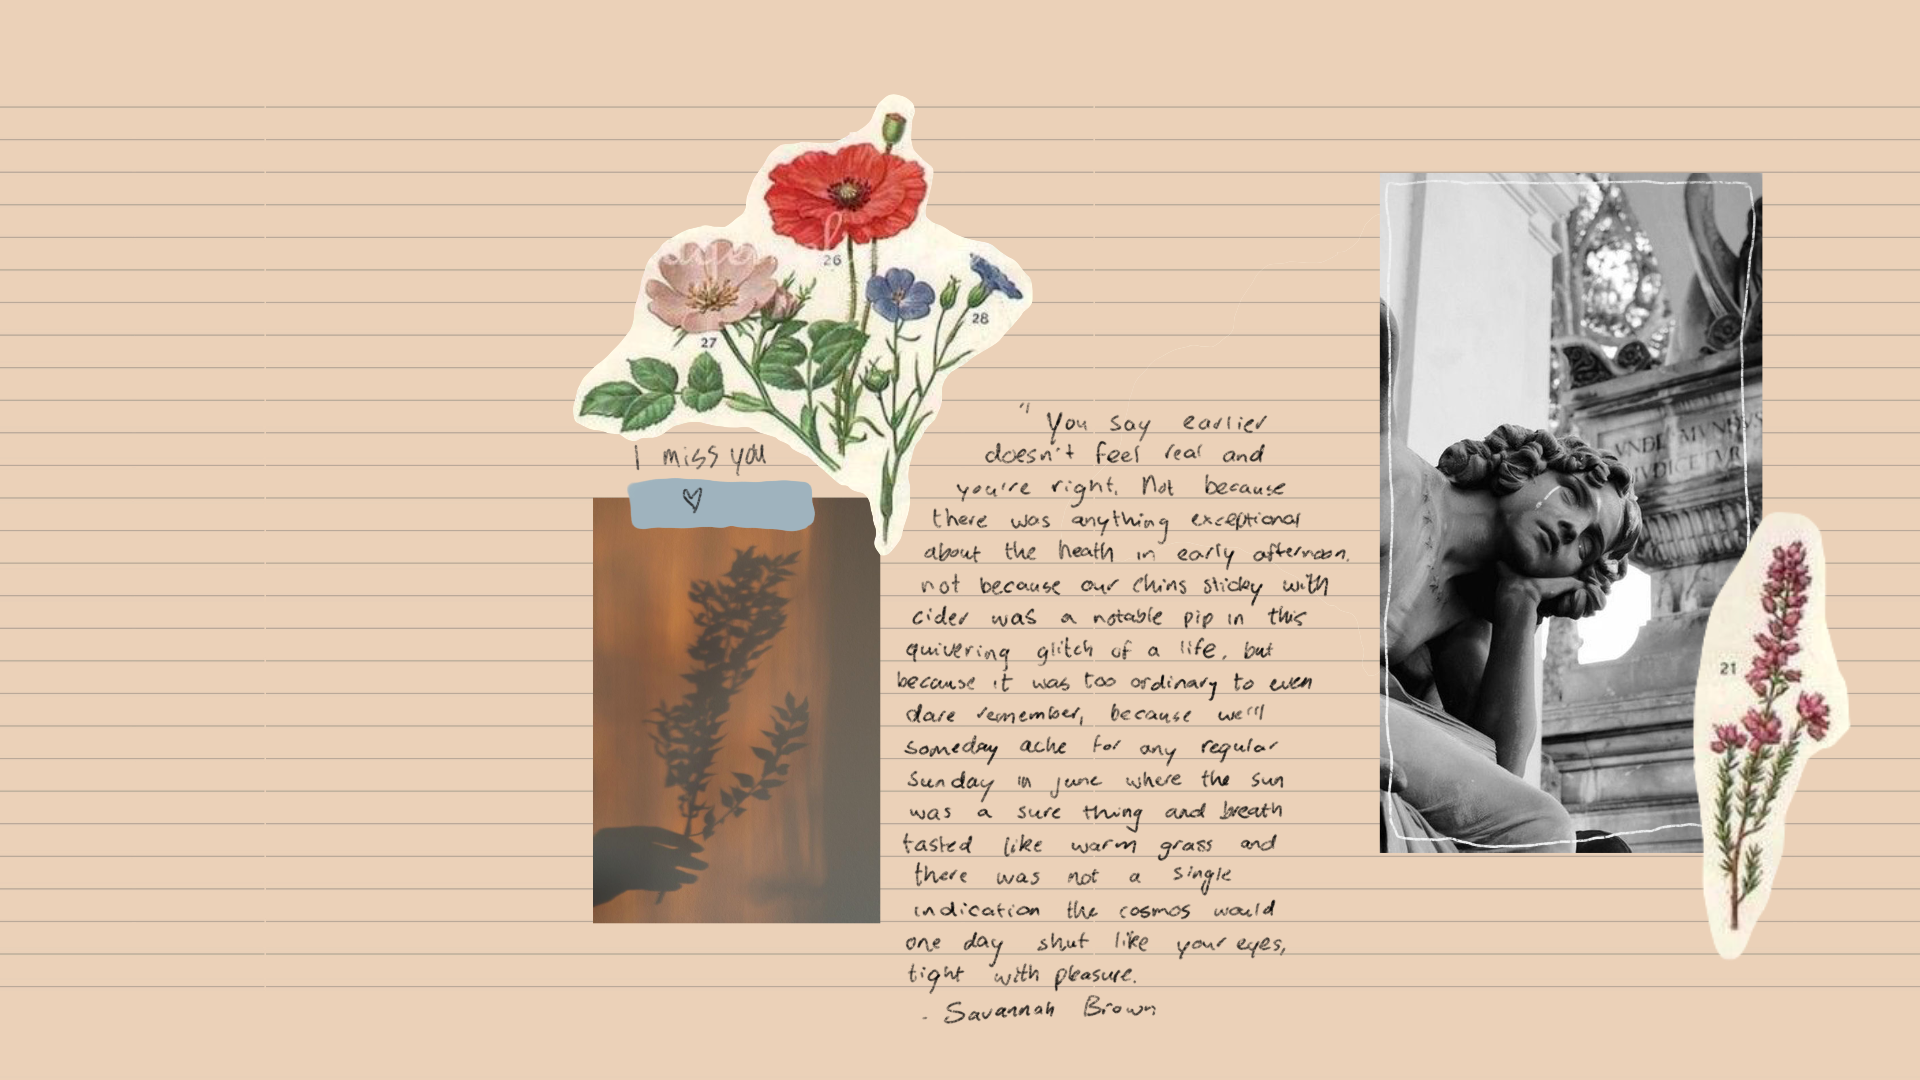 26
27
28
I miss you
"You say earlier
doesn't feel real and
you're right. Not because
there was anything exceptional
about the heath in early afternoon.
not because our chins sticky with
cider was a notable pip in this
quivering glitch of a life, but
because it was too ordinary to even
dare remember, because we'll
someday ache for any regular
Sunday in june where the sun
was a sure thing and breath
tasted like warm grass and
there was not a single
indication the cosmos would
one day shut like your eyes,
tight with pleasure.
- Savannah Brown
VNDE MVNDVS
IVDICETVR
21